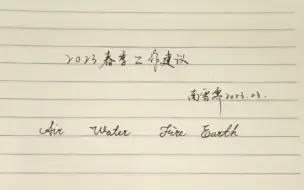 2023春季工作建议
南雪寒2023.03.
Air Water Fire Earth